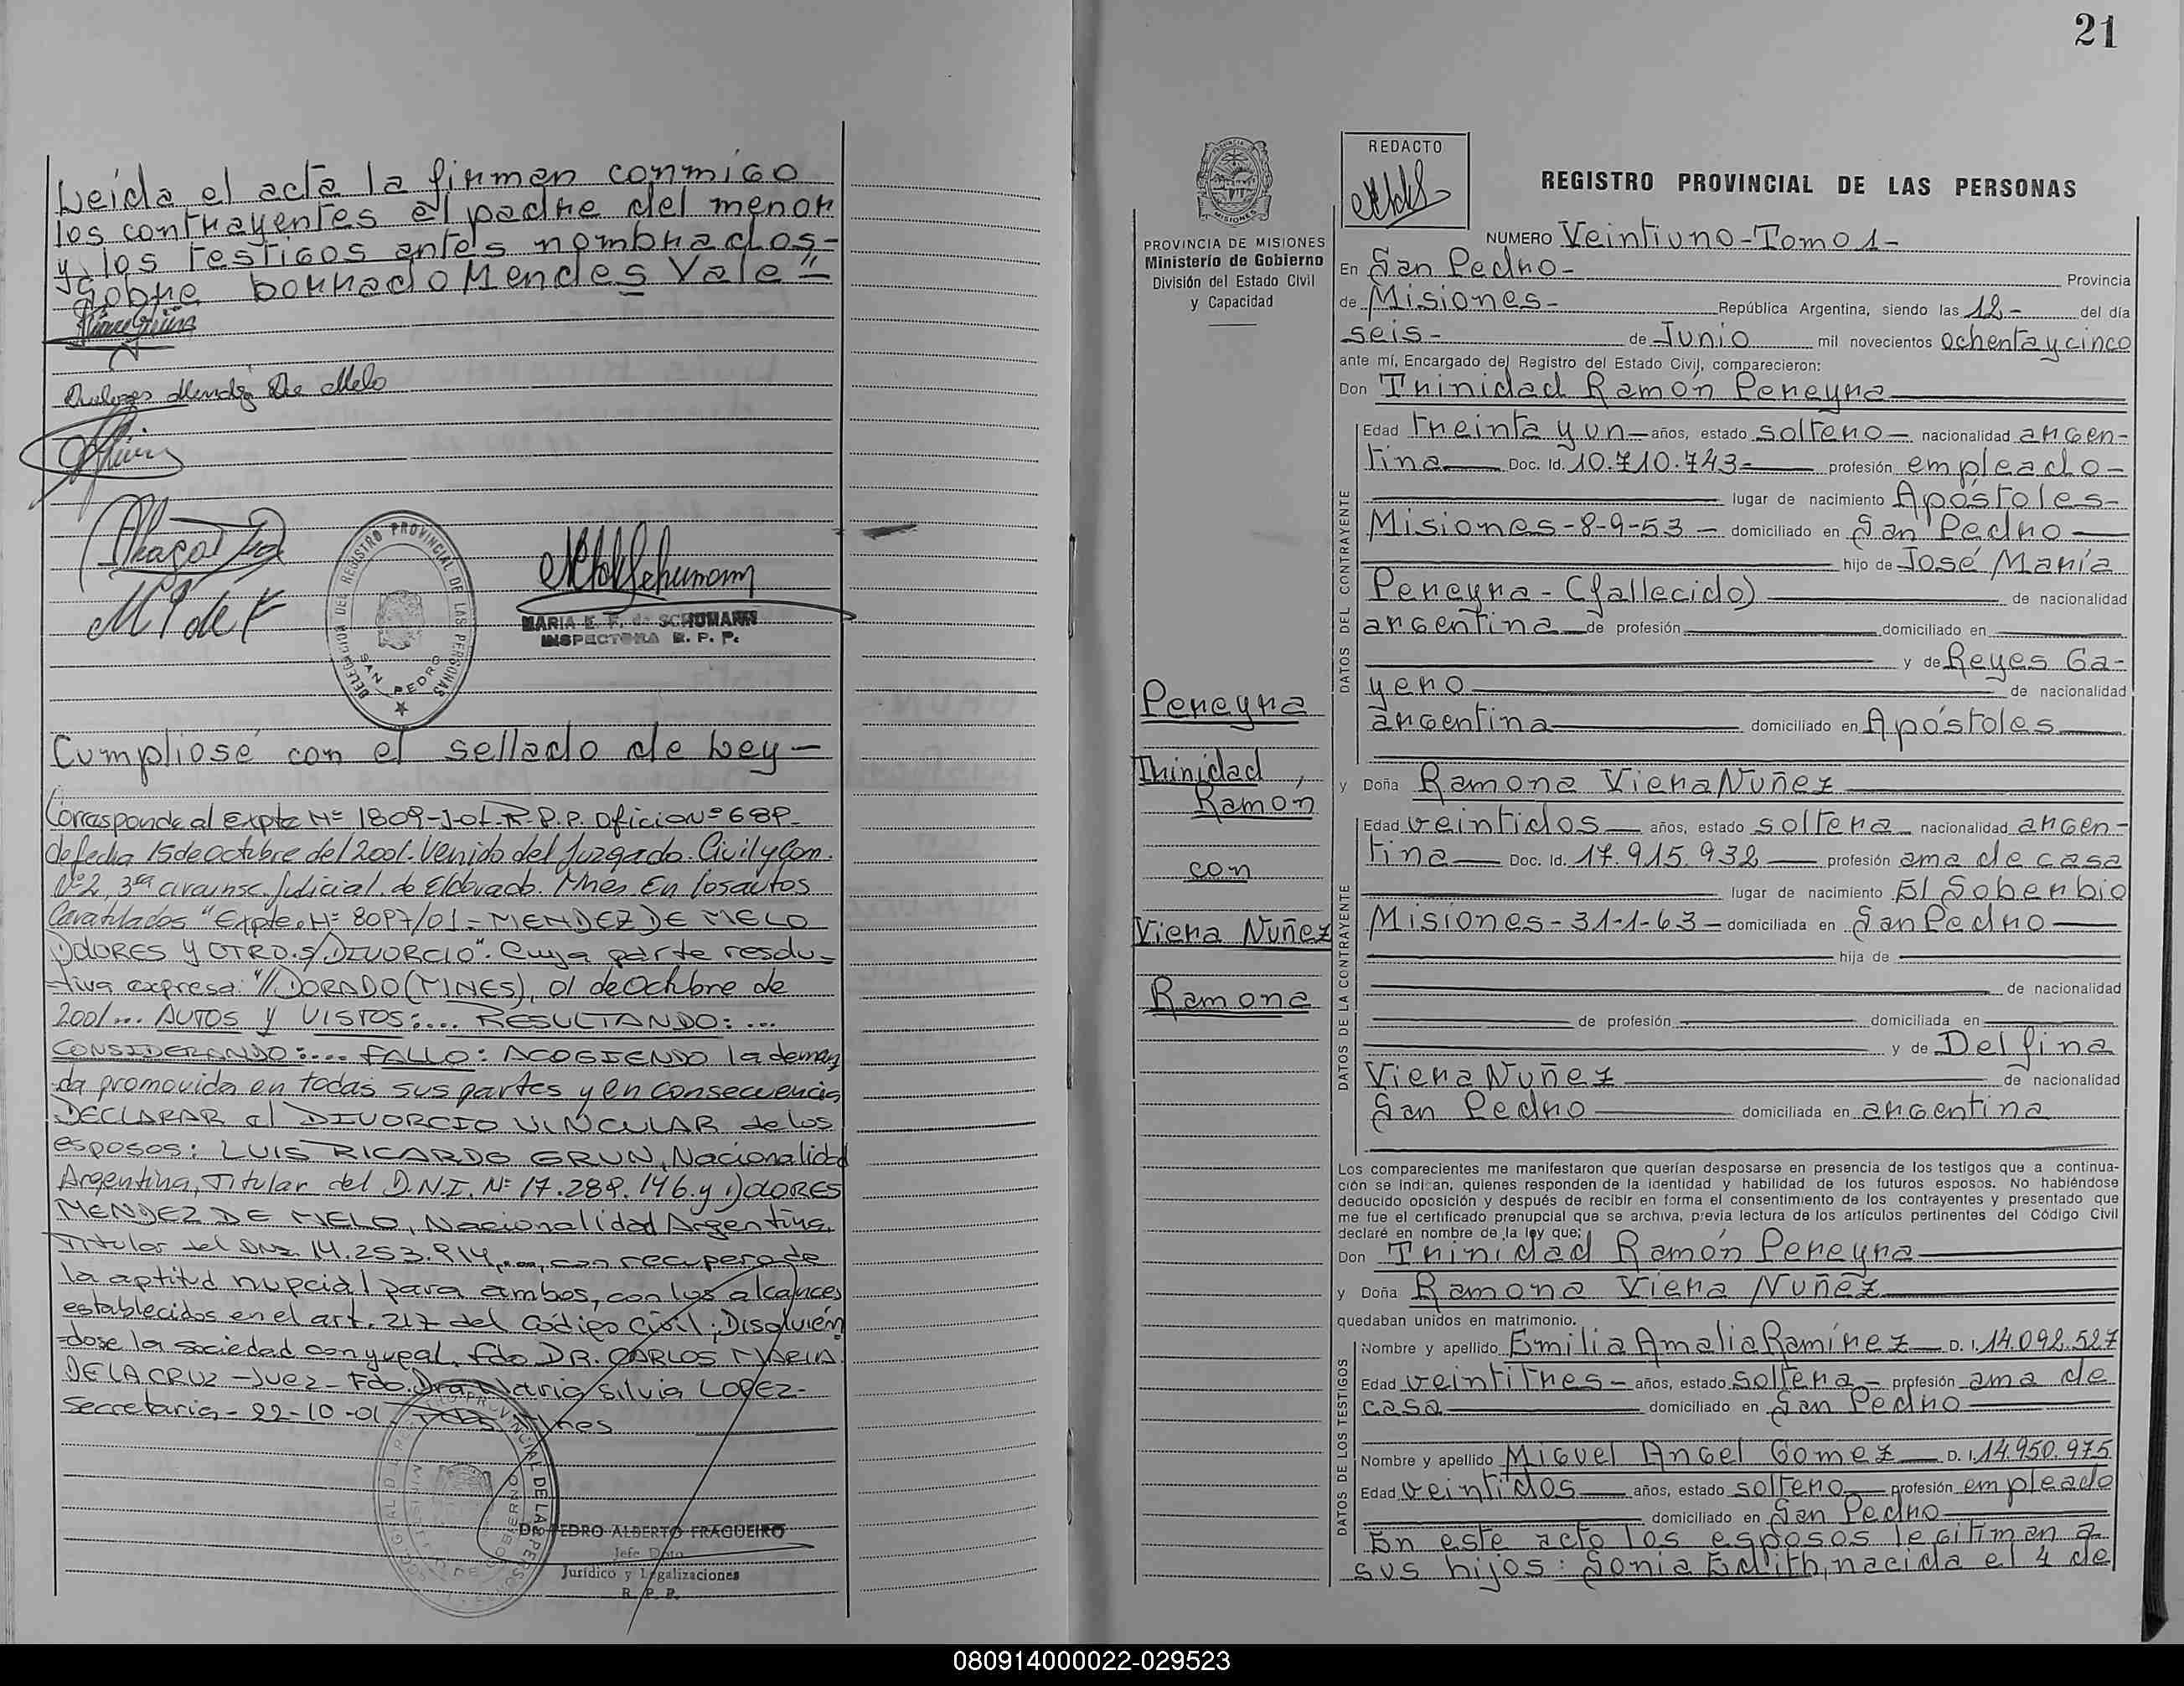 Leída el acta la firman conmigo
los contrayentes el padre del menor
y los testigos antes nombrados-
Sobre borrado Mendes Vale"=
Dolores Mendez De Melo
DELEGACION DEL REGISTRO PROVINCIAL DE LAS PERSONAS
SAN PEDRO
MARIA E. F. de SCHUMANN
INSPECTORA R. P. P.
Cumpliose con el sellado de Ley-
Corresponde al Expte Nº 1809-J-01-R.P.P. Oficio Nº 689-
de fecha 15 de octubre del 2001. Venido del Juzgado. Civil y Com.
Nº 2, 3ra circunsc. Judicial. de Eldorado. Mnes. En los autos
Caratulados "Expte. Nº 8097/01 - MENDEZ DE MELO
DOLORES Y OTRO. S/ DIVORCIO". Cuya parte resolu-
tiva expresa: "//DORADO (MNES), 01 de Octubre de
2001... AUTOS Y VISTOS:... RESULTANDO:...
CONSIDERANDO:... FALLO: ACOGIENDO la deman
da promovida en todas sus partes y en consecuencia
DECLARAR el DIVORCIO VINCULAR de los
esposos: LUIS RICARDO GRUN, Nacionalidad
Argentina, Titular del D.N.I. Nº 17.289.146. y DOLORES
MENDEZ DE MELO, Nacionalidad Argentina,
Titular del DNI. 14.253.914,..., con recupero de
la aptitud nupcial para ambos, con los alcances
establecidos en el art. 217 del Código Civil; Disolvién
dose la sociedad conyugal. Fdo DR. CARLOS MARIA
DE LA CRUZ - Juez - Fdo. Dra. Maria Silvia LOPEZ-
Secretaria - 22-10-01
Dr. PEDRO ALBERTO FRAGUEIRO
Jefe Dpto
Jurídico y Legalizaciones
R. P. P.
21
PROVINCIA DE MISIONES
Ministerio de Gobierno
División del Estado Civil
y Capacidad
Pereyra
Trinidad,
Ramón
con
Viera Nuñez
Ramona
REDACTO
REGISTRO PROVINCIAL DE LAS PERSONAS
NUMERO Veintiuno-Tomo 1-
En San Pedro- Provincia
de Misiones- República Argentina, siendo las 12- del día
seis- de Junio mil novecientos ochenta y cinco
ante mí, Encargado del Registro del Estado Civil, comparecieron:
Don Trinidad Ramón Pereyra
DATOS DEL CONTRAYENTE
Edad treinta y un años, estado soltero nacionalidad argen-
tina Doc. Id. 10.710.743- profesión empleado-
lugar de nacimiento Apóstoles-
Misiones-8-9-53- domiciliado en San Pedro
hijo de José María
Pereyra-(fallecido) de nacionalidad
argentina de profesión domiciliado en
y de Reyes Ga-
yero de nacionalidad
argentina domiciliado en Apóstoles
y Doña Ramona Viera Nuñez
DATOS DE LA CONTRAYENTE
Edad veintidos años, estado soltera nacionalidad argen-
tina Doc. Id. 17.915.932 profesión ama de casa
lugar de nacimiento El Soberbio
Misiones-31-1-63- domiciliada en San Pedro
hija de
de nacionalidad
de profesión domiciliada en
y de Delfina
Viera Nuñez de nacionalidad
San Pedro domiciliada en argentina
Los comparecientes me manifestaron que querían desposarse en presencia de los testigos que a continua-
ción se indican, quienes responden de la identidad y habilidad de los futuros esposos. No habiéndose
deducido oposición y después de recibir en forma el consentimiento de los contrayentes y presentado que
me fue el certificado prenupcial que se archiva, previa lectura de los artículos pertinentes del Código Civil
declaré en nombre de la ley que;
Don Trinidad Ramón Pereyra
y Doña Ramona Viera Nuñez
quedaban unidos en matrimonio.
DATOS DE LOS TESTIGOS
Nombre y apellido Emilia Amalia Ramírez D. I. 14.092.527
Edad veintitres- años, estado soltera- profesión ama de
casa domiciliado en San Pedro
Nombre y apellido Miguel Angel Gomez D. I. 14.950.975
Edad veintidos años, estado soltero profesión empleado
domiciliado en San Pedro
En este acto los esposos legitiman a
sus hijos: Sonia Edith, nacida el 4 de
080914000022-029523